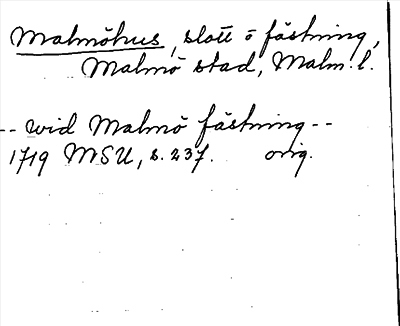 Malmöhus, slott o fästning,
Malmö stad, Malm. l.
-- wid Malmö fästning --
1719 MSU, s. 237. orig.